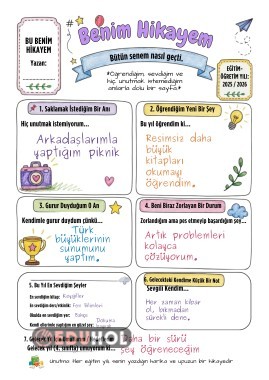 BU BENİM
HİKAYEM
Yazan:
Benim Hikayem
Bütün senem nasıl geçti.
*Öğrendiğim, sevdiğim ve
hiç unutmak istemediğim
anlarla dolu bir sayfa*
EĞİTİM-
ÖĞRETİM YILI:
2025 / 2026
1. Saklamak İstediğim Bir Anı
Hiç unutmak istemiyorum...
Arkadaşlarımla
yaptığım piknik
2. Öğrendiğim Yeni Bir Şey
Bu yıl öğrendim ki...
Resimsiz daha
büyük
kitapları
okumayı
öğrendim.
3. Gurur Duyduğum O An
Kendimle gurur duydum çünkü...
Türk
büyüklerinin
sunumunu
yaptım.
4. Beni Biraz Zorlayan Bir Durum
Zorlandığım ama pes etmeyip başardığım şey...
Artık problemleri
kolayca
çözüyorum.
5. Bu Yıl En Sevdiğim Şeyler
En sevdiğim kitap:
En sevdiğim ders/etkinlik: Fen Bilimleri
Okulda en sevdiğim yer: Bahçe
6. Gelecekteki Kendime Küçük Bir Not
Sevgili Kendim...
Her zaman kibar
ol, bıkmadan
sürekli dene.
EDUHOL
daha bir sürü
şey öğreneceğim
Unutma: Her eğitim yılı senin yazdığın harika ve upuzun bir hikayedir.